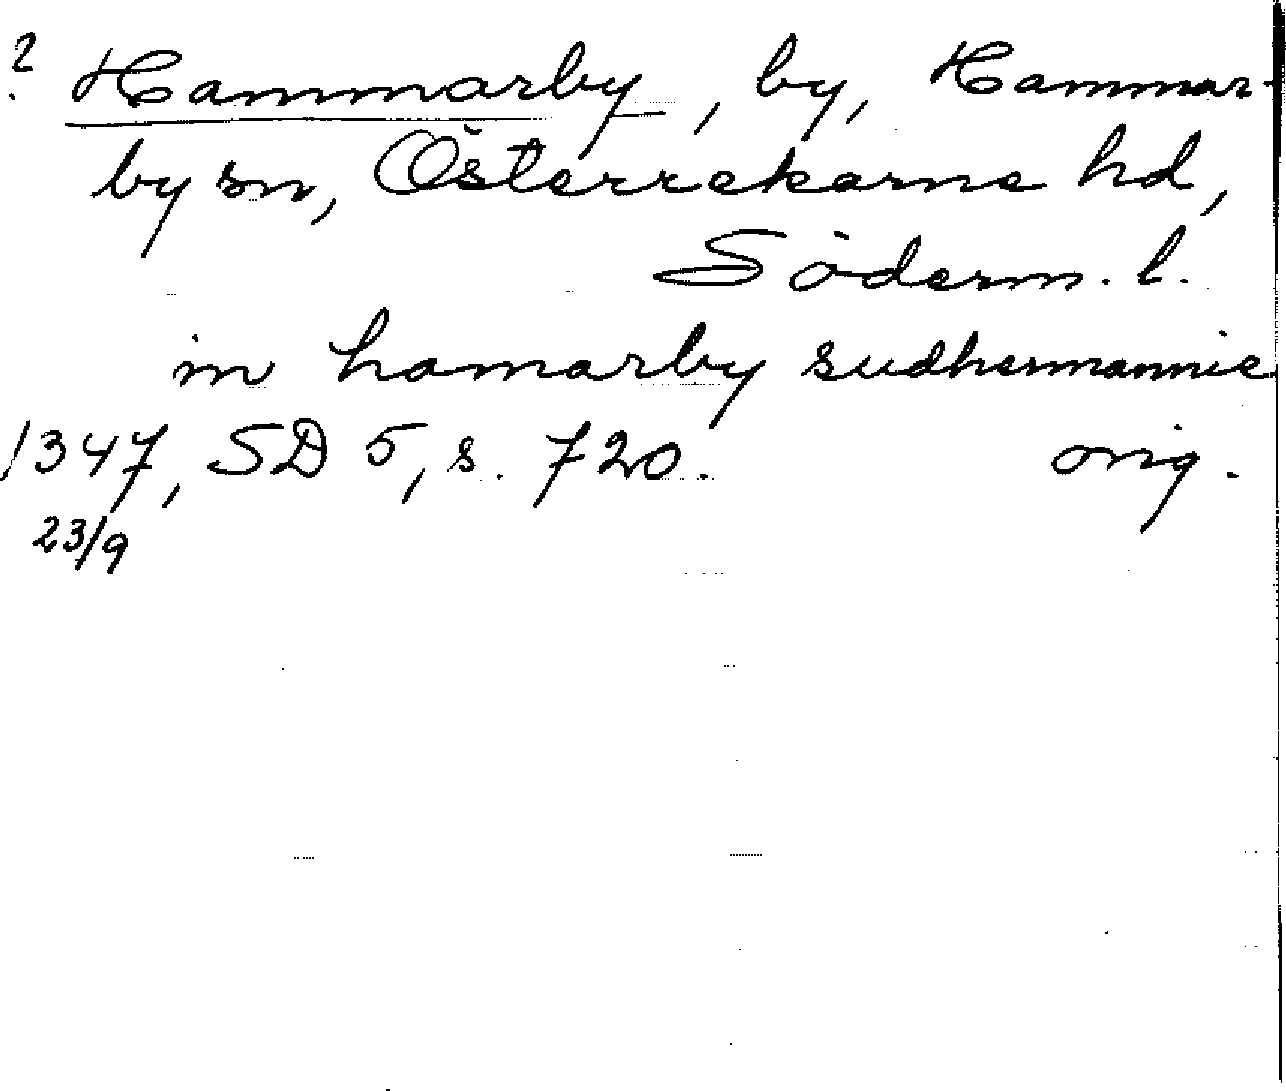 ? Hammarby, by, Hammar-
by sn, Österrekarne hd,
Söderm. l.
in hamarby sudhermannie
1347, SD 5, s. 720. orig.
23/9